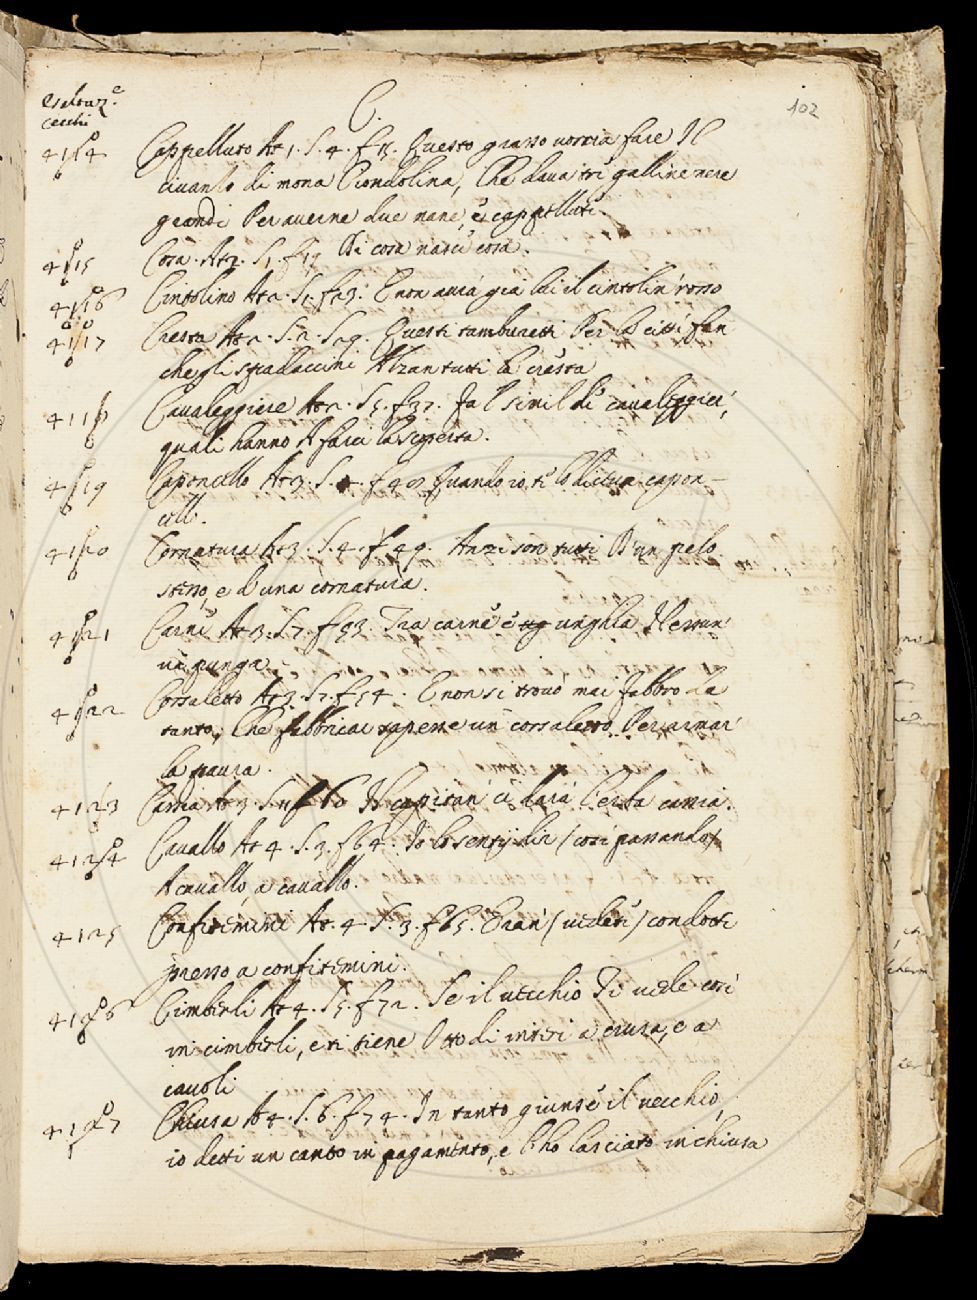 C.
102
Cecchi
4114 Cappelluto At 1. S. 4. f 15. Questo grasso vorria fare Il
civanlo di mona Ciondolina, Che dava tri galline nere
grandi Per averne due nane, e cappellute.
4115 Cosa. At 2. S. 1. f 17 Di cosa nasce cosa.
4116 Cintolino At 2. S. 1. f 23. E non avià gia lai il cintolin rosso
4117 Cresta At 2. S. 2. f 29. Questi tamburetti Per le città fan
che gli spadaccini Alzan tutti la cresta
4118 Cavaleggiere At 2. S. 5. f 37. Fa l simil di cavaleggieri,
quali hanno A farci la scoperta.
4119 Caponcello At 3. S. 4. f 49 Quando io ti diceva capon-
cello.
4120 Cornatura At 3. S. 4. f 49. Anzi son tutti D'un pelo
stesso, e d'una cornatura.
4121 Carne At 3. S. 7. f 53. Tra carne e unghia Nessun
vi punga.
4122 Corsaletto At 3. S. 7. f 54. E non si trovò mai fabbro Da
tanto, Che fabbricar sapesse un corsaletto Per armar
la paura.
4123 Caccia At 3. f 60 Il capitan ci darà Certa caccia.
4124 Cavallo At 4. S. 3. f 64. Io lo sentij dir / cosi passando /
A cavallo, a cavallo.
4125 Confitemini At. 4 S. 3. f 65. Eran / vedete / condotti
presso a confitemini.
4126 Cimberli At 4. S. 5. f 72. Se il vecchio Ti vede cosi
in cimberli, e ti tiene Otto di interi a crusca, e a
cavoli
4127 Chiusa At 4. S. 6. f 74. In tanto giunse il vecchio,
io detti un canto in pagamento, e l'ho lasciato in chiusa